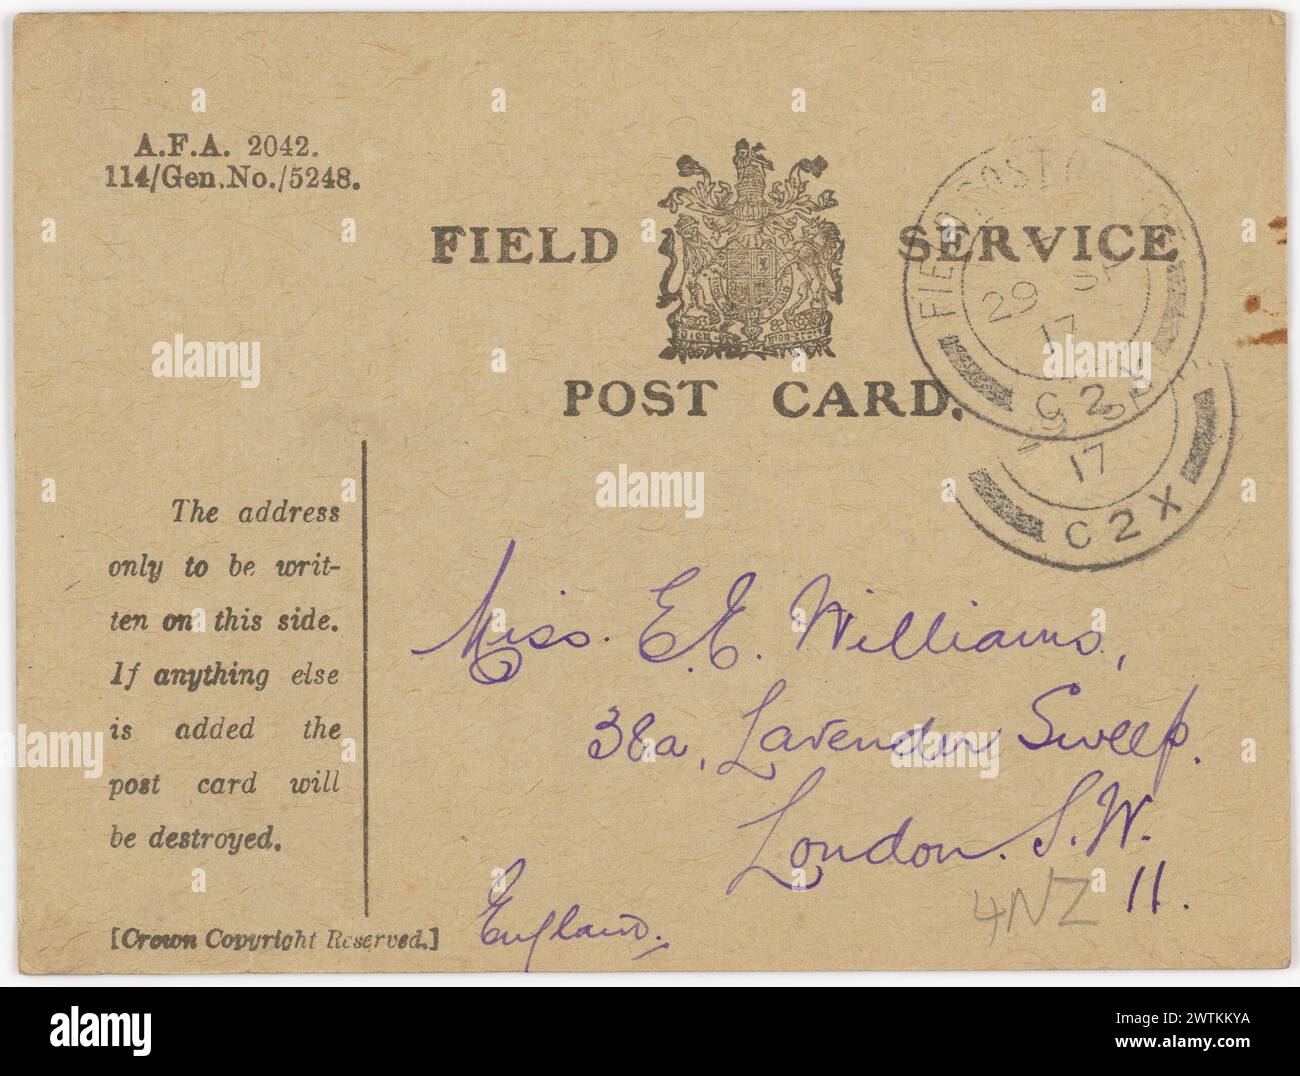 A.F.A. 2042.
114/Gen.No./5248.
FIELD SERVICE
POST CARD.
FIELD POST OFFICE
29 SP
17
C2X
17
C2X
The address
only to be writ-
ten on this side.
If anything else
is added the
post card will
be destroyed.
[Crown Copyright Reserved.]
Miss. E.E. Williams,
38a, Lavender Sweep.
London. S.W.
11.
England.
4NZ
alamy
alamy
alamy
a alamy
Image ID: 2WTKKYA
www.alamy.com